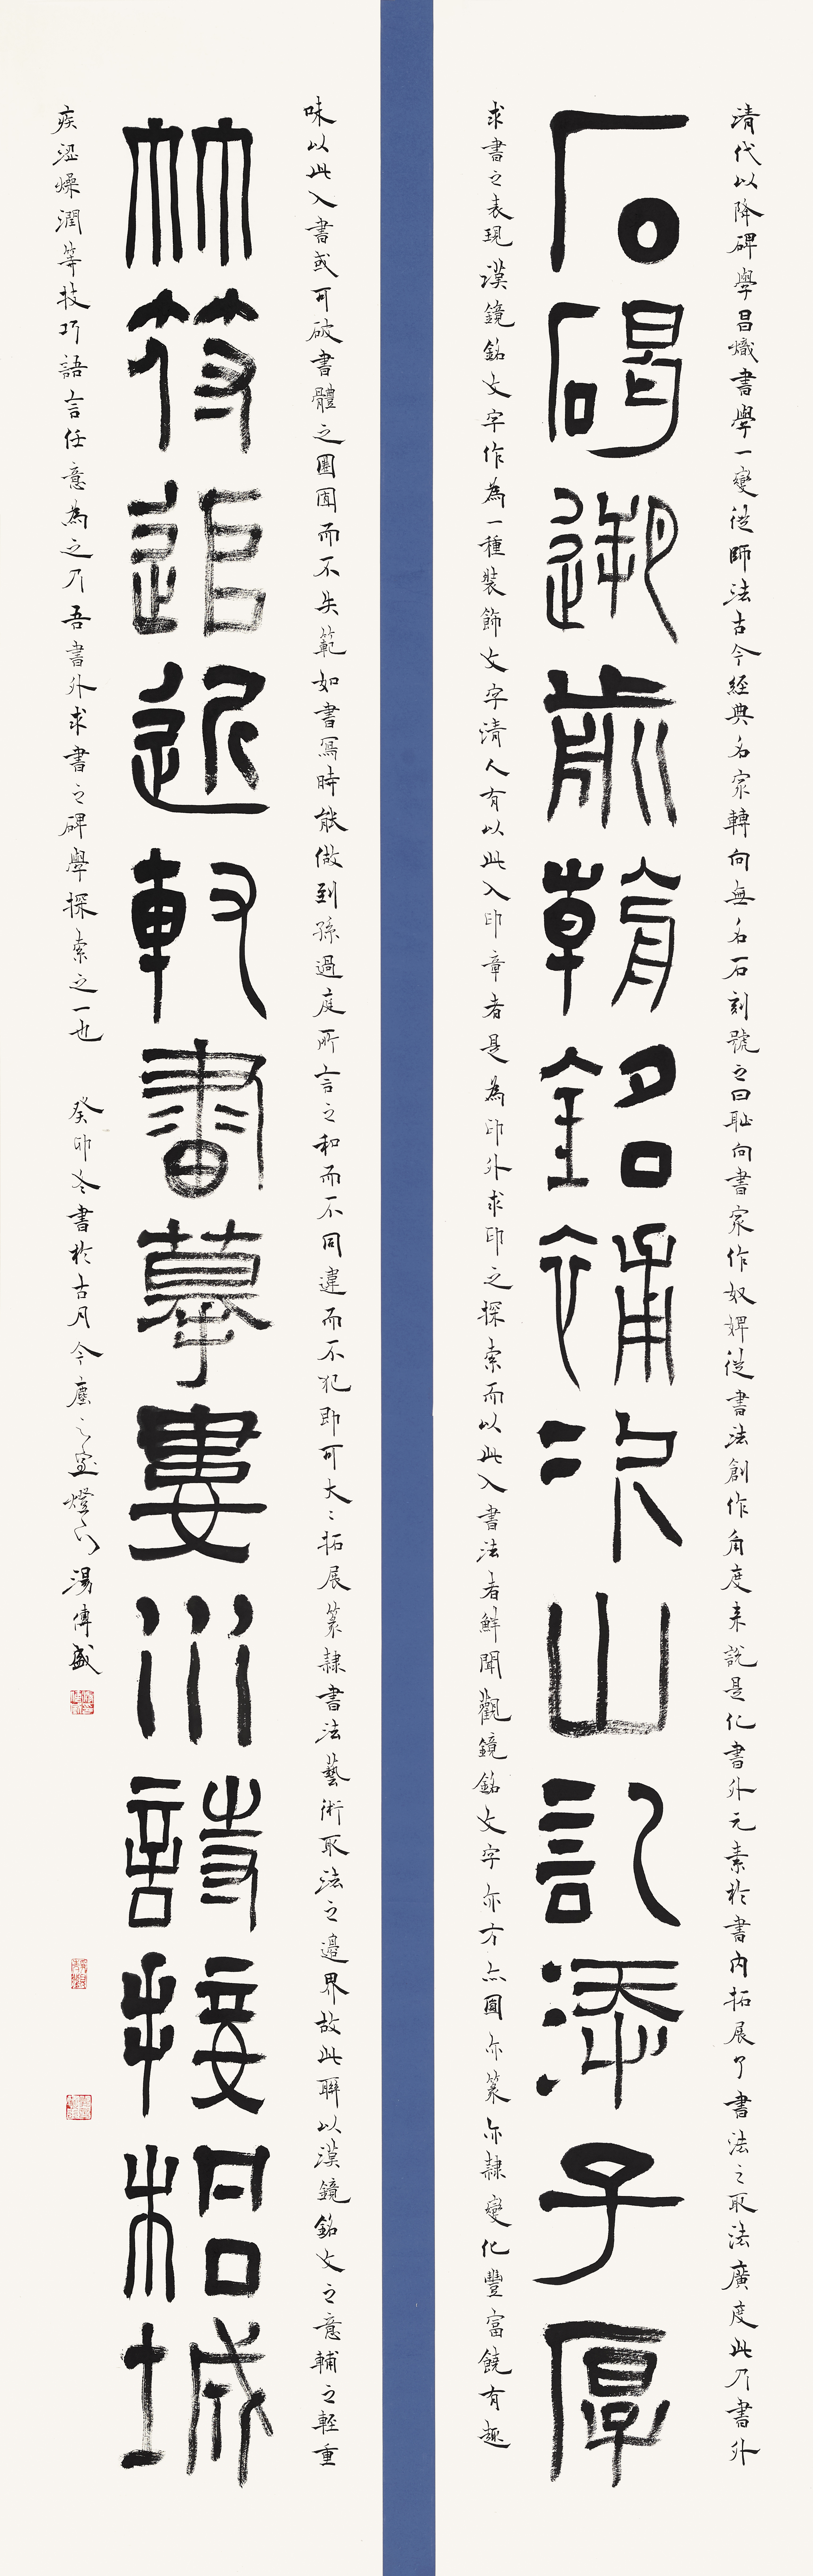 清代以降碑學昌熾書學一變從師法古今經典名家轉向無名石刻號之曰耻向書家作奴婢從書法創作角度来說是化書外元素於書内拓展了書法之取法廣度此乃書外
石碣遡前翰銘補次山記添子厚
求書之表現漢鏡銘文字作為一種裝飾文字清人有以此入印章者是為印外求印之探索而以此入書法者鮮聞觀鏡銘文字亦方亦圓亦篆亦隸變化豐富饒有趣
味以此入書或可破書體之囹圄而不失範如書寫時能做到孫過庭所言之和而不同違而不犯即可大大拓展篆隸書法藝術取法之邊界故此聯以漢鏡銘文之意輔之輕重
林符追近執書摹婁川詩接柏城
疾澀燥潤等技巧語言任意為之乃吾書外求書之碑學探索之一也 癸卯冬書於古月今塵之室燈下 湯傳盛